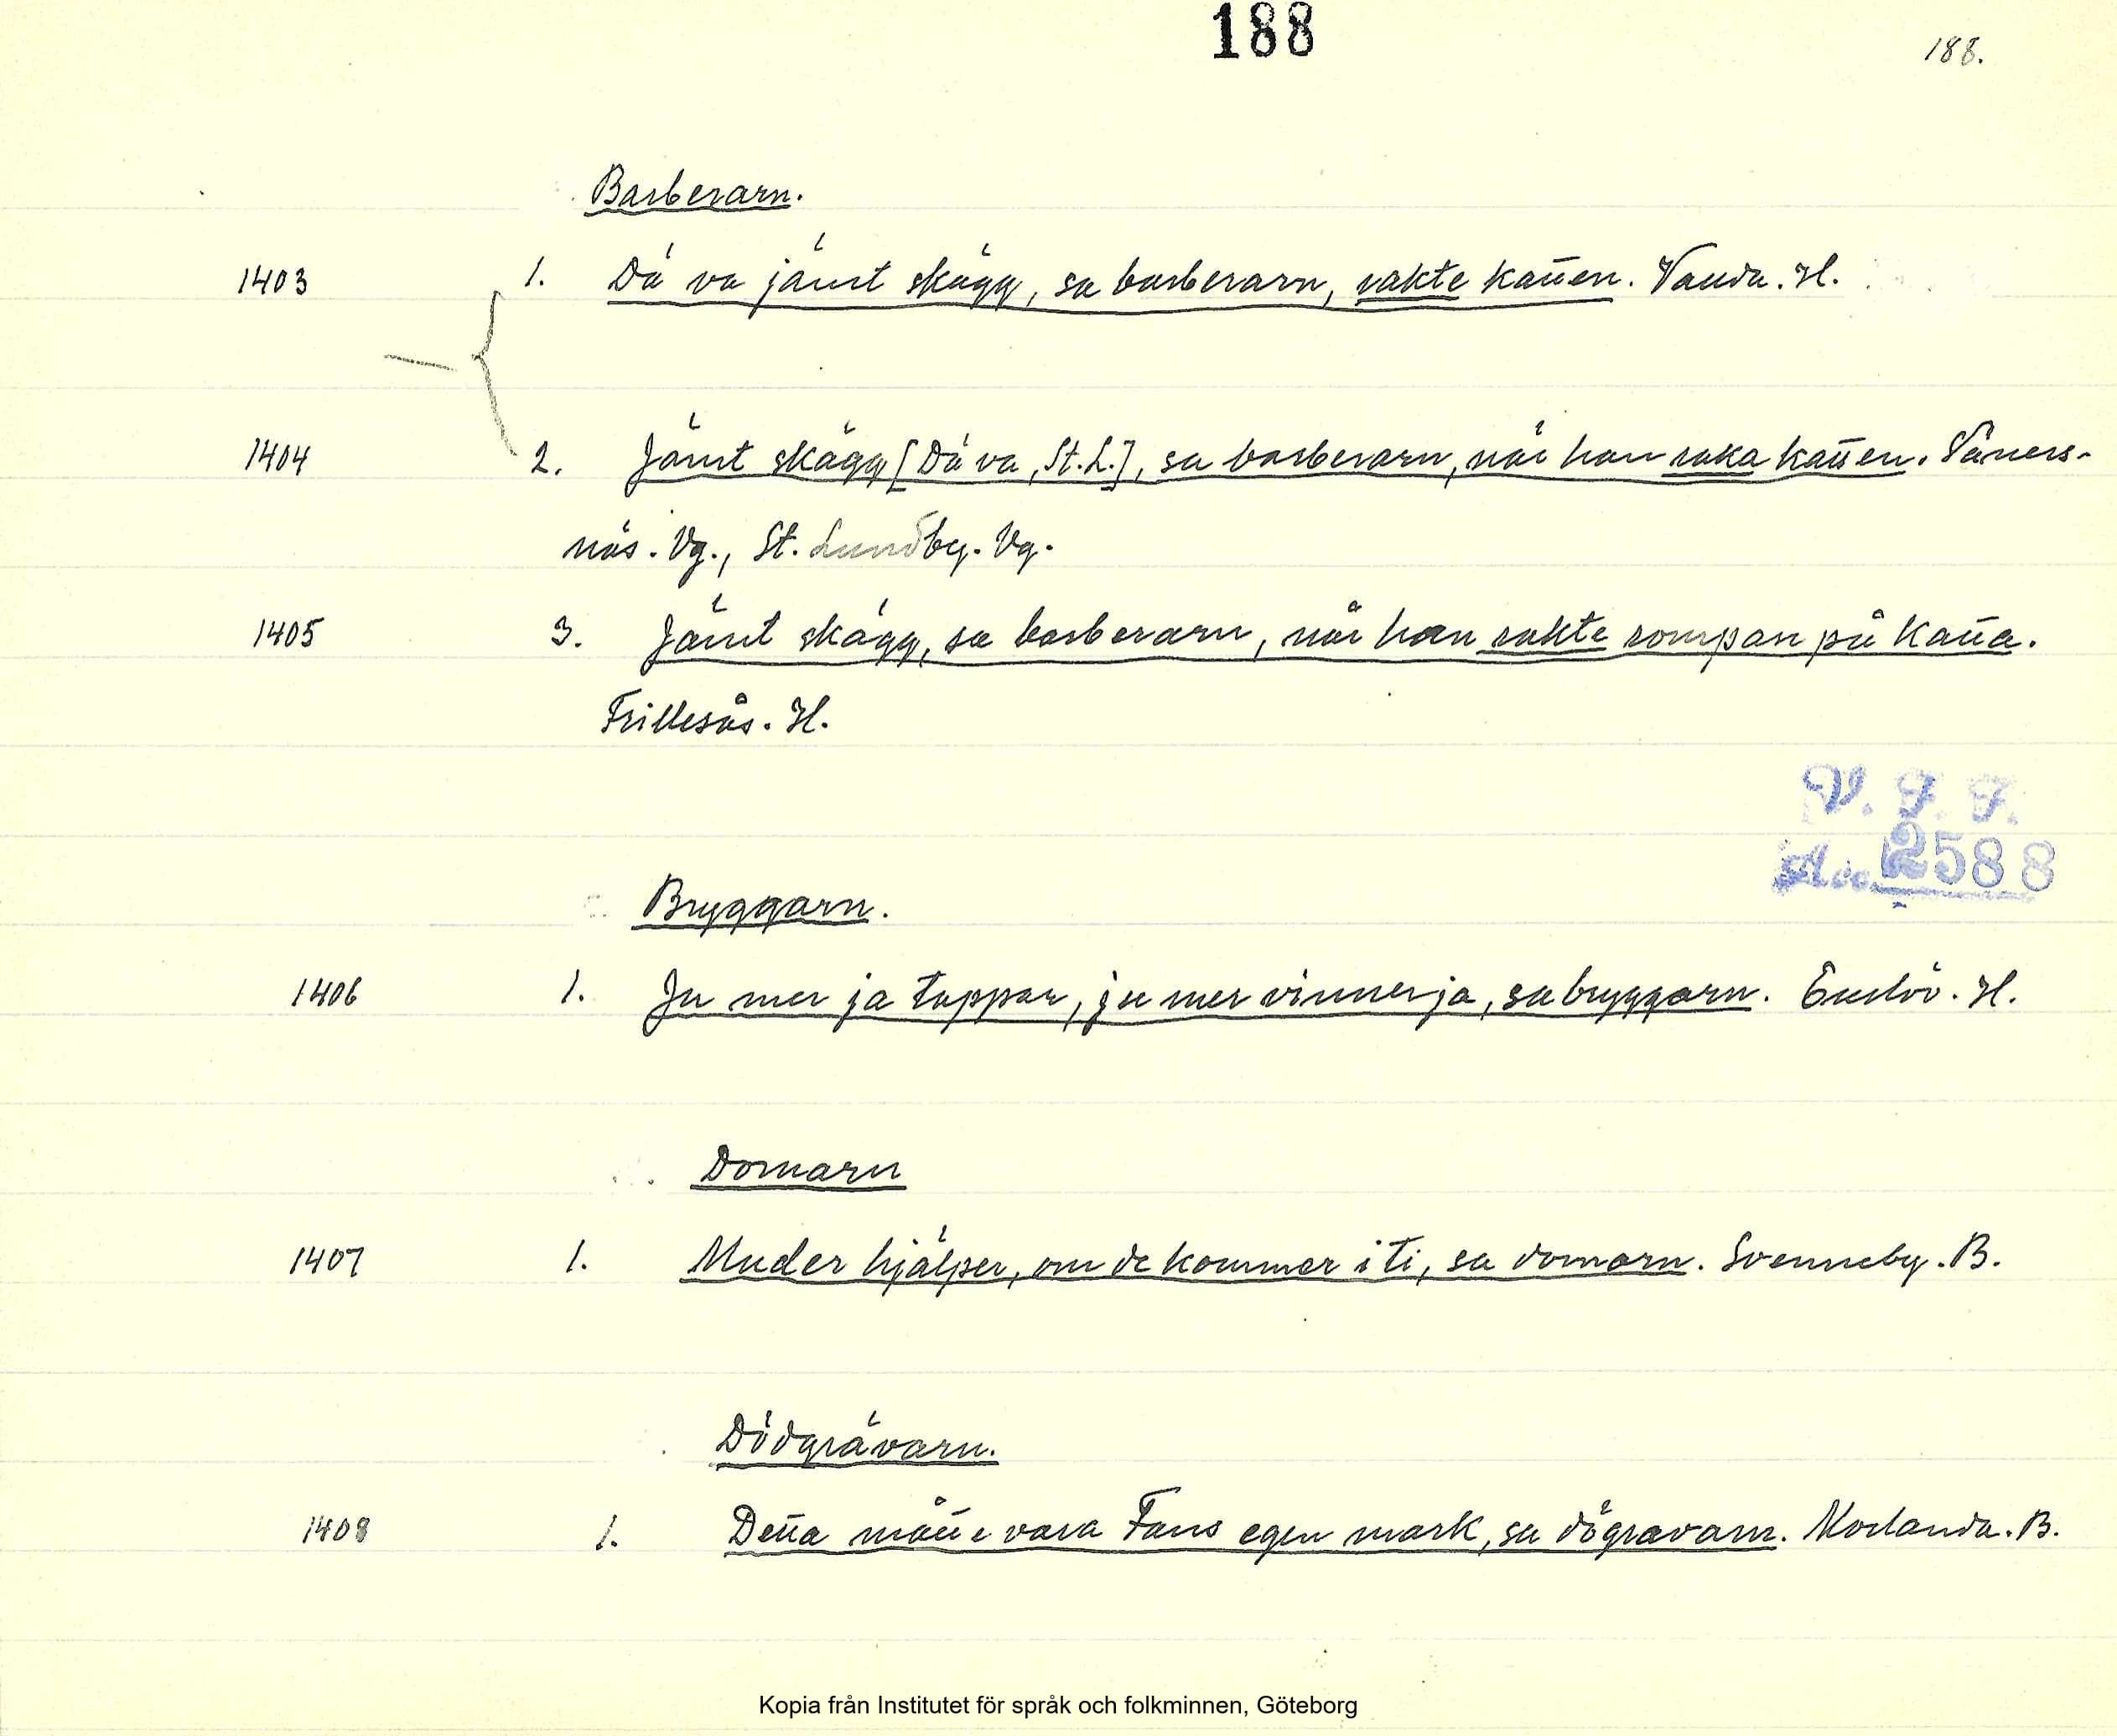 188
188.
Barberarn.
1403 1. Dä va jämt skägg, sa barberarn, rakte kattten. H.
1404 2. Jämt skägg [Dä va, St. L.], sa barberarn, når han raka katten. Väners-
näs. Vg., St. Lundby. Vg.
1405 3. Jämt skägg, sa barberarn, når han rakte rompan på katta.
Frillesås. H.
V. F. F.
Acc. 2588
Bryggarn.
1406 1. Ju mer ja tappar, ju mer vinner ja, sa bryggarn. Enslöv. H.
Domarn
1407 1. Muder hjälper, om de kommer i ti, sa domarn. Svenneby. B.
Dödgrävarn.
1408 1. Detta måtte vara Fans egen mark, sa dögravarn. Morlanda. B.
Kopia från Institutet för språk och folkminnen, Göteborg